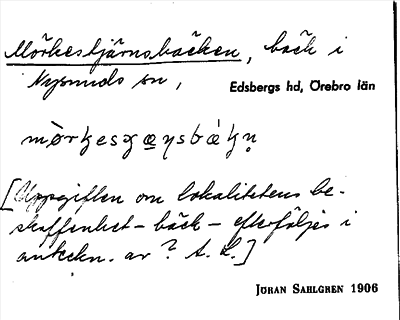 Mörkestjärnsbäcken, bäck i
Nysunds sn,
Edsbergs hd, Örebro län
[Uppgiften om lokalitetens be-
skaffenhet – bäck – efterföljes i
anteckn. av ? A. L.]
JÖRAN SAHLGREN 1906